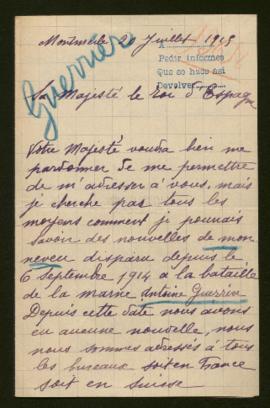 Montmerle 20 Juillet 1915
A
Pedir informes
Que se hace así
Devolver
Guerrier
Sa Majesté le Roi d'Espagne
Votre Majesté voudra bien me
pardonner de me permettre
de m'adresser à vous, mais
je cherche pas tous les
moyens comment je pourrais
savoir des nouvelles de mon
neveu disparu depuis le
6 Septembre 1914 à la bataille
de la marne Antoine Guerrier
Depuis cette date nous avons
eu aucune nouvelle, nous
nous sommes adressés à tous
les bureaux soit en France
soit en Suisse